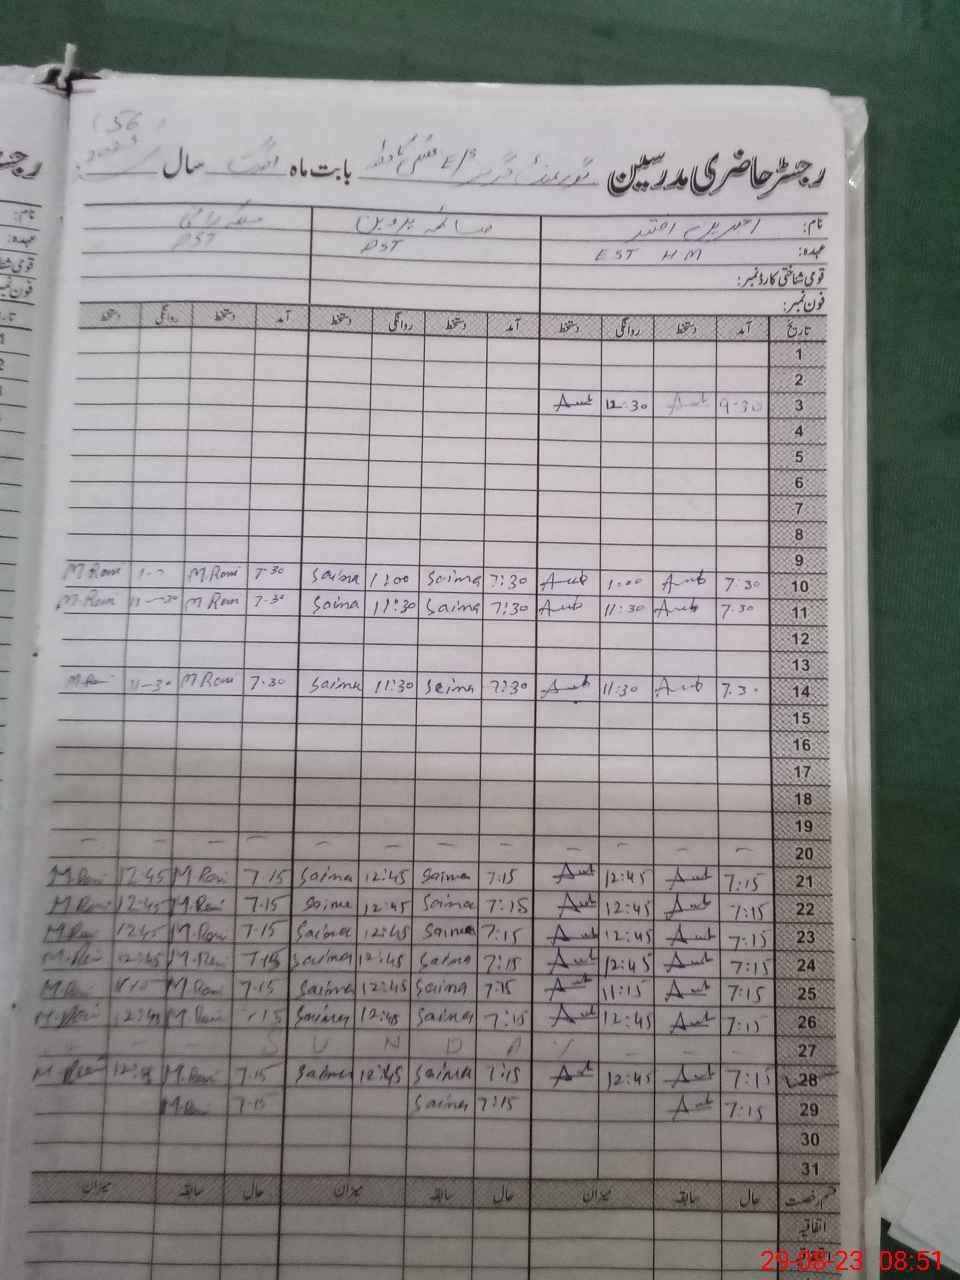 (56)
رجسٹر حاضری مدرسین گورنمنٹ گرلز E/S بابت ماہ اگست سال 2023
نام: اختر صائمہ پروین
عہدہ: EST HM PST PST
قومی شناختی کارڈ نمبر:
فون نمبر:
تاریخ آمد دستخط روانگی دستخط آمد دستخط روانگی دستخط آمد دستخط روانگی دستخط
1
2
3 9-30 Aub 12:30 Aub
4
5
6
7
8
9
10 7-30 Aub 1:00 Aub 7:30 Saima 1:00 Saima 7-30 M.Rani 1--
11 7-30 Aub 11:30 Aub 7:30 Saima 11:30 Saima 7-30 M Rani 11-30 M.Rani
12
13
14 7.30 Aub 11:30 Aub 7:30 Saima 11:30 Saima 7-30 M Rani 11-30 M.Rani
15
16
17
18
19
20 – – – – – – – – – – – –
21 7:15 Aub 12:45 Aub 7:15 Saima 12:45 Saima 7-15 M.Rani 12:45 M.Rani
22 7:15 Aub 12:45 Aub 7:15 Saima 12:45 Saima 7-15 M.Rani 12:45 M.Rani
23 7:15 Aub 12:45 Aub 7:15 Saima 12:45 Saima 7-15 M.Rani 12:45 M.Rani
24 7:15 Aub 12:45 Aub 7:15 Saima 12:45 Saima 7-15 M.Rani 12:45 M.Rani
25 7:15 Aub 11:15 Aub 7:15 Saima 12:45 Saima 7-15 M.Rani M.Rani
26 7:15 Aub 12:45 Aub 7:15 Saima 12:45 Saima 7:15 M.Rani 12:45 M.Rani
27 – – – S U N D A Y – – –
28 7:15 Aub 12:45 Aub 7:15 Saima 12:45 Saima 7-15 M.Rani 12:45 M.Rani
29 7:15 Aub 7:15 Saima 7-15 M.Rani
30
31
قسم رخصت حال سابقہ میزان حال سابقہ میزان حال سابقہ میزان
اتفاقیہ
29-08-23 08:51